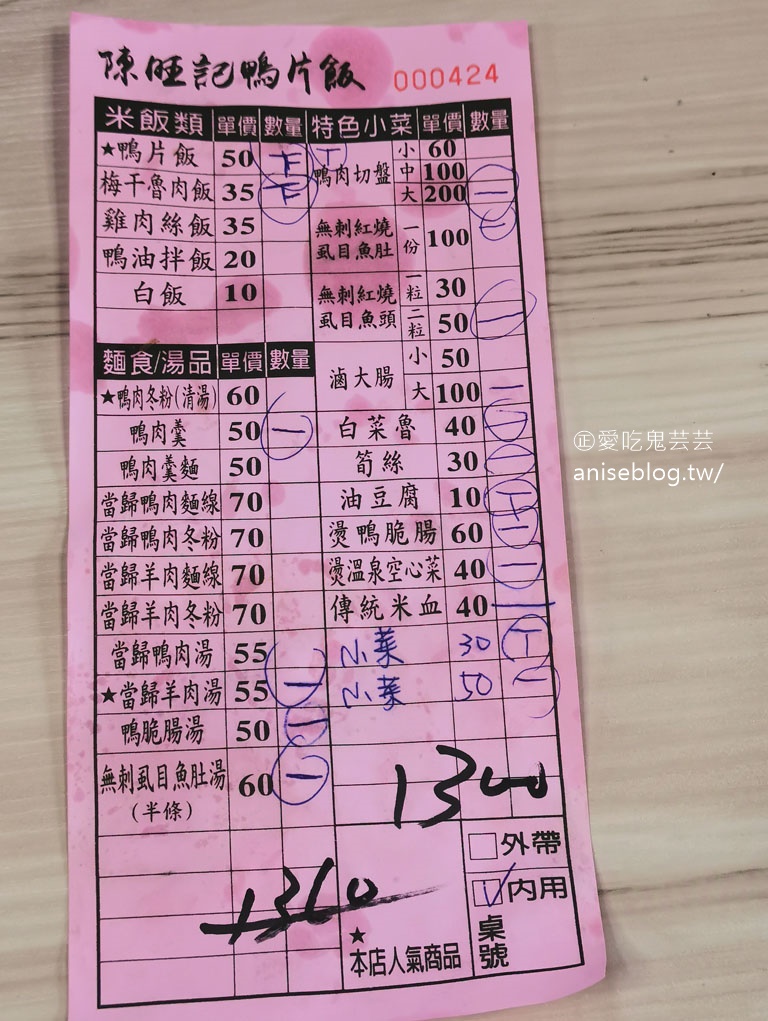 陳旺記鴨片飯 000424
米飯類 單價 數量
★鴨片飯 50 下
梅干魯肉飯 35 下
雞肉絲飯 35
鴨油拌飯 20
白飯 10
麵食/湯品 單價 數量
★鴨肉冬粉(清湯) 60
鴨肉羹 50 一
鴨肉羹麵 50
當歸鴨肉麵線 70
當歸鴨肉冬粉 70
當歸羊肉麵線 70
當歸羊肉冬粉 70
當歸鴨肉湯 55
★當歸羊肉湯 55 一
鴨脆腸湯 50 一
無刺虱目魚肚湯 60 一
(半條)
特色小菜 單價 數量
鴨肉切盤 小 60
中 100
大 200 一
無刺紅燒虱目魚肚 一份 100 一
無刺紅燒虱目魚頭 一粒 30
二粒 50 一
滷大腸 小 50
大 100 一
白菜魯 40
筍絲 30
油豆腐 10
燙鴨脆腸 60
燙溫泉空心菜 40
傳統米血 40
小菜 30
小菜 50
1300
1310
外帶
內用
桌號
★本店人氣商品
正愛吃鬼芸芸
aniseblog.tw/